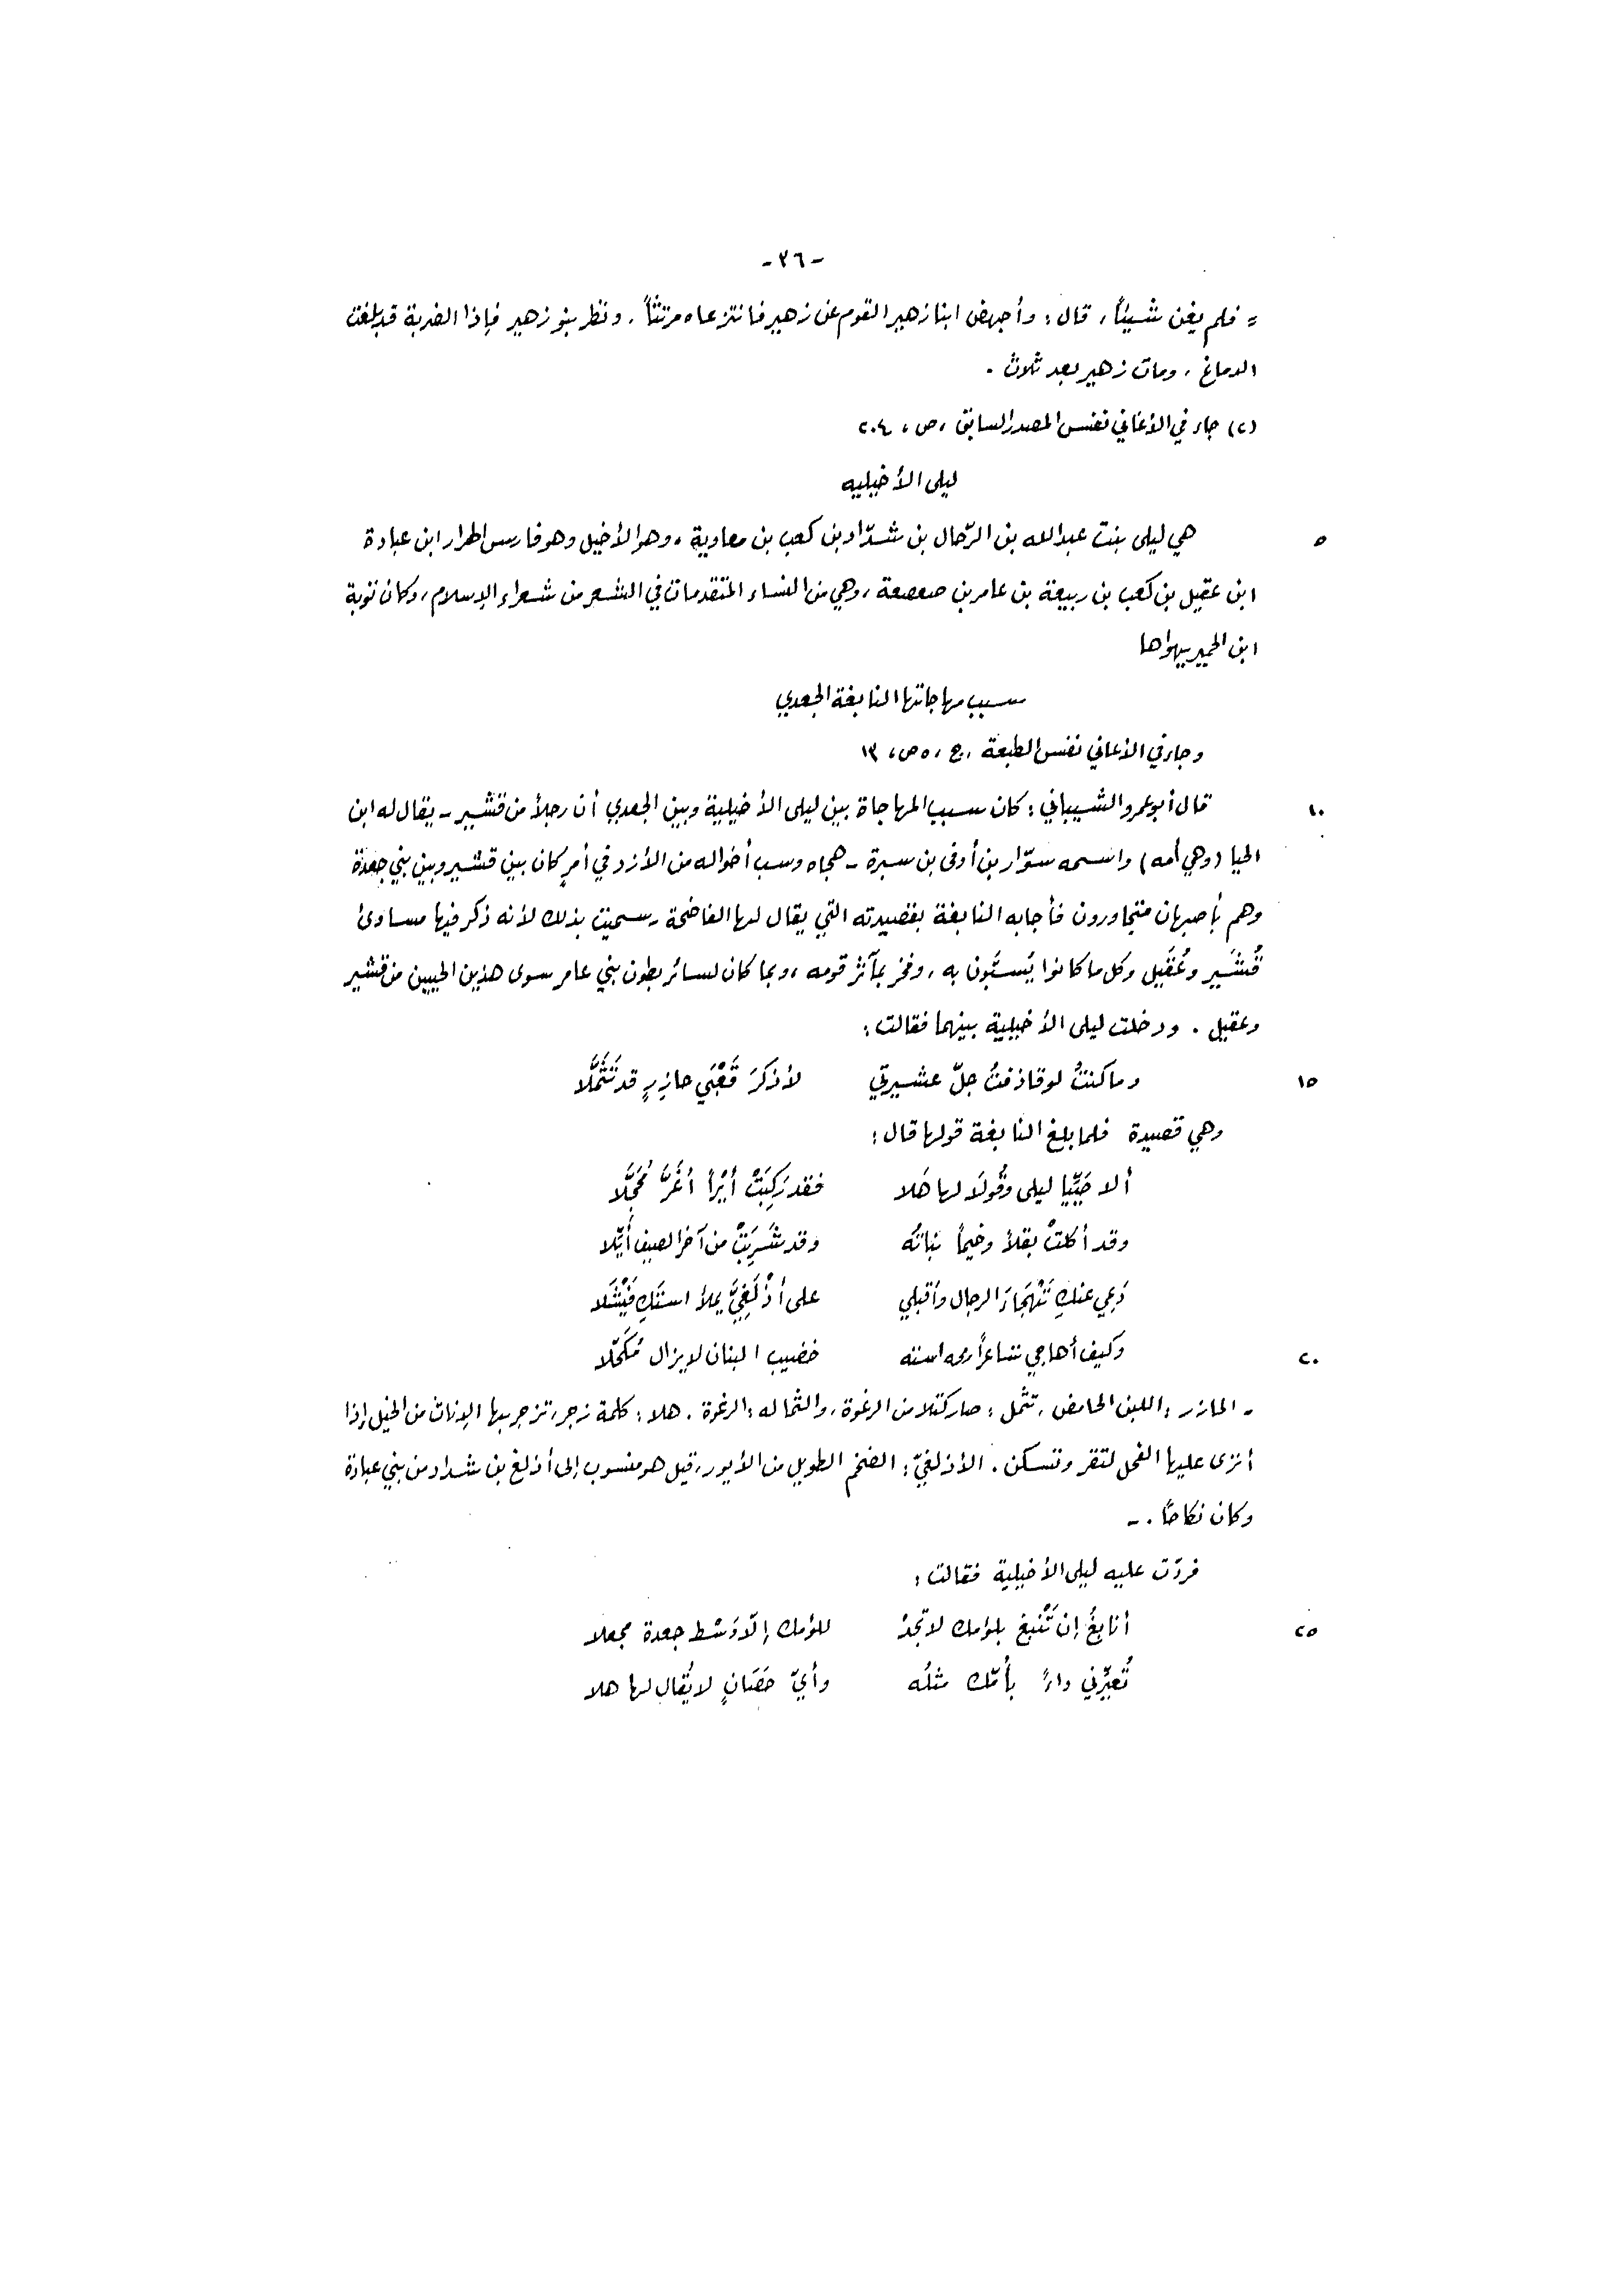 -٣٦-
= فلم يغن شيئاً، قال: وأجهض ابنا زهير القوم عن زهير فانتزعاه مرتثاً، ونظر بنو زهير فإذا الضربة قد بلغت
الدماغ، ومات زهير بعد ثلاث.
(٢) جاء في الأغاني نفس المصدر السابق، ص، ٢٠٤
ليلى الأخيليه
٥ هي ليلى بنت عبدالله بن الرّحال بن شدّاد بن كعب بن معاوية، وهو الأخيل وهو فارس الهرار ابن عبادة
ابن عقيل بن كعب بن ربيعة بن عامر بن صعصعة، وهي من النساء المتقدمات في الشعر من شعراء الإسلام، وكان توبة
ابن الحمير يهواها
سبب مهاجاتها النابغة الجعدي
وجاء في الأغاني نفس الطبعة، ج، ٥ ص، ١٣
١٠ قال أبو عمرو الشيباني: كان سبب المهاجاة بين ليلى الأخيلية وبين الجعدي أن رجلاً من قشير - يقال له ابن
الحيا (وهي أمه) واسمه سوّار بن أوفى بن سبرة - هجاه وسب أخواله من الأزد في أمرٍ كان بين قشير وبين بني جعدة
وهم بأصبهان متجاورون فأجابه النابغة بقصيدته التي يقال لها الفاضحة - سميت بذلك لأنه ذكر فيها مساوئ
قُشَير وعُقَيل وكل ما كانوا يُسبُّون به، وفخر بمآثر قومه، وبما كان لسائر بطون بني عامر سوى هذين الحيين من قشير
وعقيل. ودخلت ليلى الأخيلية بينهما فقالت:
١٥ وما كنتُ لو قاذفتُ جلّ عشيرتي لأذكرَ قَعْبَي حازرٍ قد تَثَمَّلَا
وهي قصيدة فلما بلغ النابغة قولها قال:
ألا حَيِّيا ليلى وقُولَا لها هَلا فقد رَكِبَتْ أيْراً أغَرَّ مُحَجَّلَا
وقد أكلتْ بقلاً وخيماً نباتُه وقد شَرِبَتْ من آخر الصيف أُيّلا
دَعِي عنكِ تَهْجَاءَ الرجال وأقبلي على أذْلَغِيَّ يملأ استَكِ فَيْشَلا
٢٠ وكيف أهاجي شاعراً رمحه استه خضيب البنان لا يزال مُكَحّلا
- الحازر: اللبن الحامض، تثمّل: صار كتلا من الرغوة، والثماله: الرغوة. هلا: كلمة زجر، تزجر بها الإناث من الخيل إذا
أنزى عليها الفحل لتقر وتسكن. الأذلغيّ: الضخم الطويل من الأيور، قيل هو منسوب إلى أذلغ بن شداد من بني عبادة
وكان نكاحًا. -
فردّت عليه ليلى الأخيلية فقالت:
٢٥ أنابغُ إن تَنْبغ بلؤمك لا تجدْ للؤمك إلّا وَسْط جعدة مجعلا
تُعيِّرُني داءً بأُمّك مثلُه وأيّ حَصَانٍ لا يُقال لها هلا